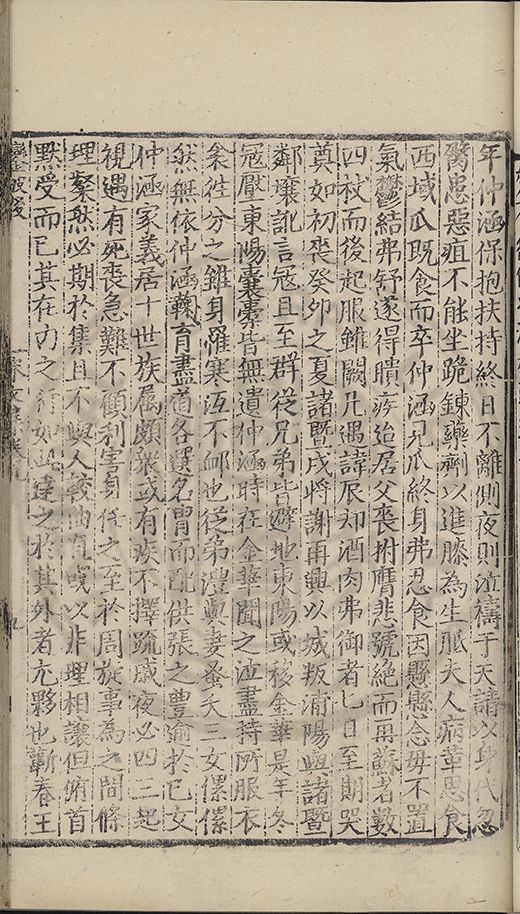 年仲涵保抱扶持終日不離側夜則泣禱于天請以身代忽
醫患惡疽不能坐跪鍊藥劑以進膝為生胝夫人病革思食
西域瓜既食而卒仲涵見瓜終身弗忍食因懸懸念母不置
氣鬱結弗舒遂得瞶疾迨居父喪拊膺悲號絕而再蘇者數
四杖而後起服雖闋凡遇諱辰却酒肉弗御者七日至期哭
奠如初喪癸卯之夏諸暨戍將謝再興以城叛浦陽與諸暨
鄰壤訛言冦且至群從兄弟皆避地東陽或移金華是年冬
冦壓東陽囊橐皆無遺仲涵時在金華聞之泣盡持所服衣
裳徃分之雖身罹寒沍不卹也從弟澧與妻蚤夭三女傫傫
然無依仲涵鞠育盡道各選名胄而配供張之豐逾於己女
仲涵家義居十世族属頗衆或有疾不擇疏戚夜必四三起
視遇有死喪急難不顧利害身任之至於周旋事為之間條
理粲然必期於集且不與人較曲直或以非理相讓但俯首
默受而已其在內之行如此達之於其外者尤夥也蘄春王